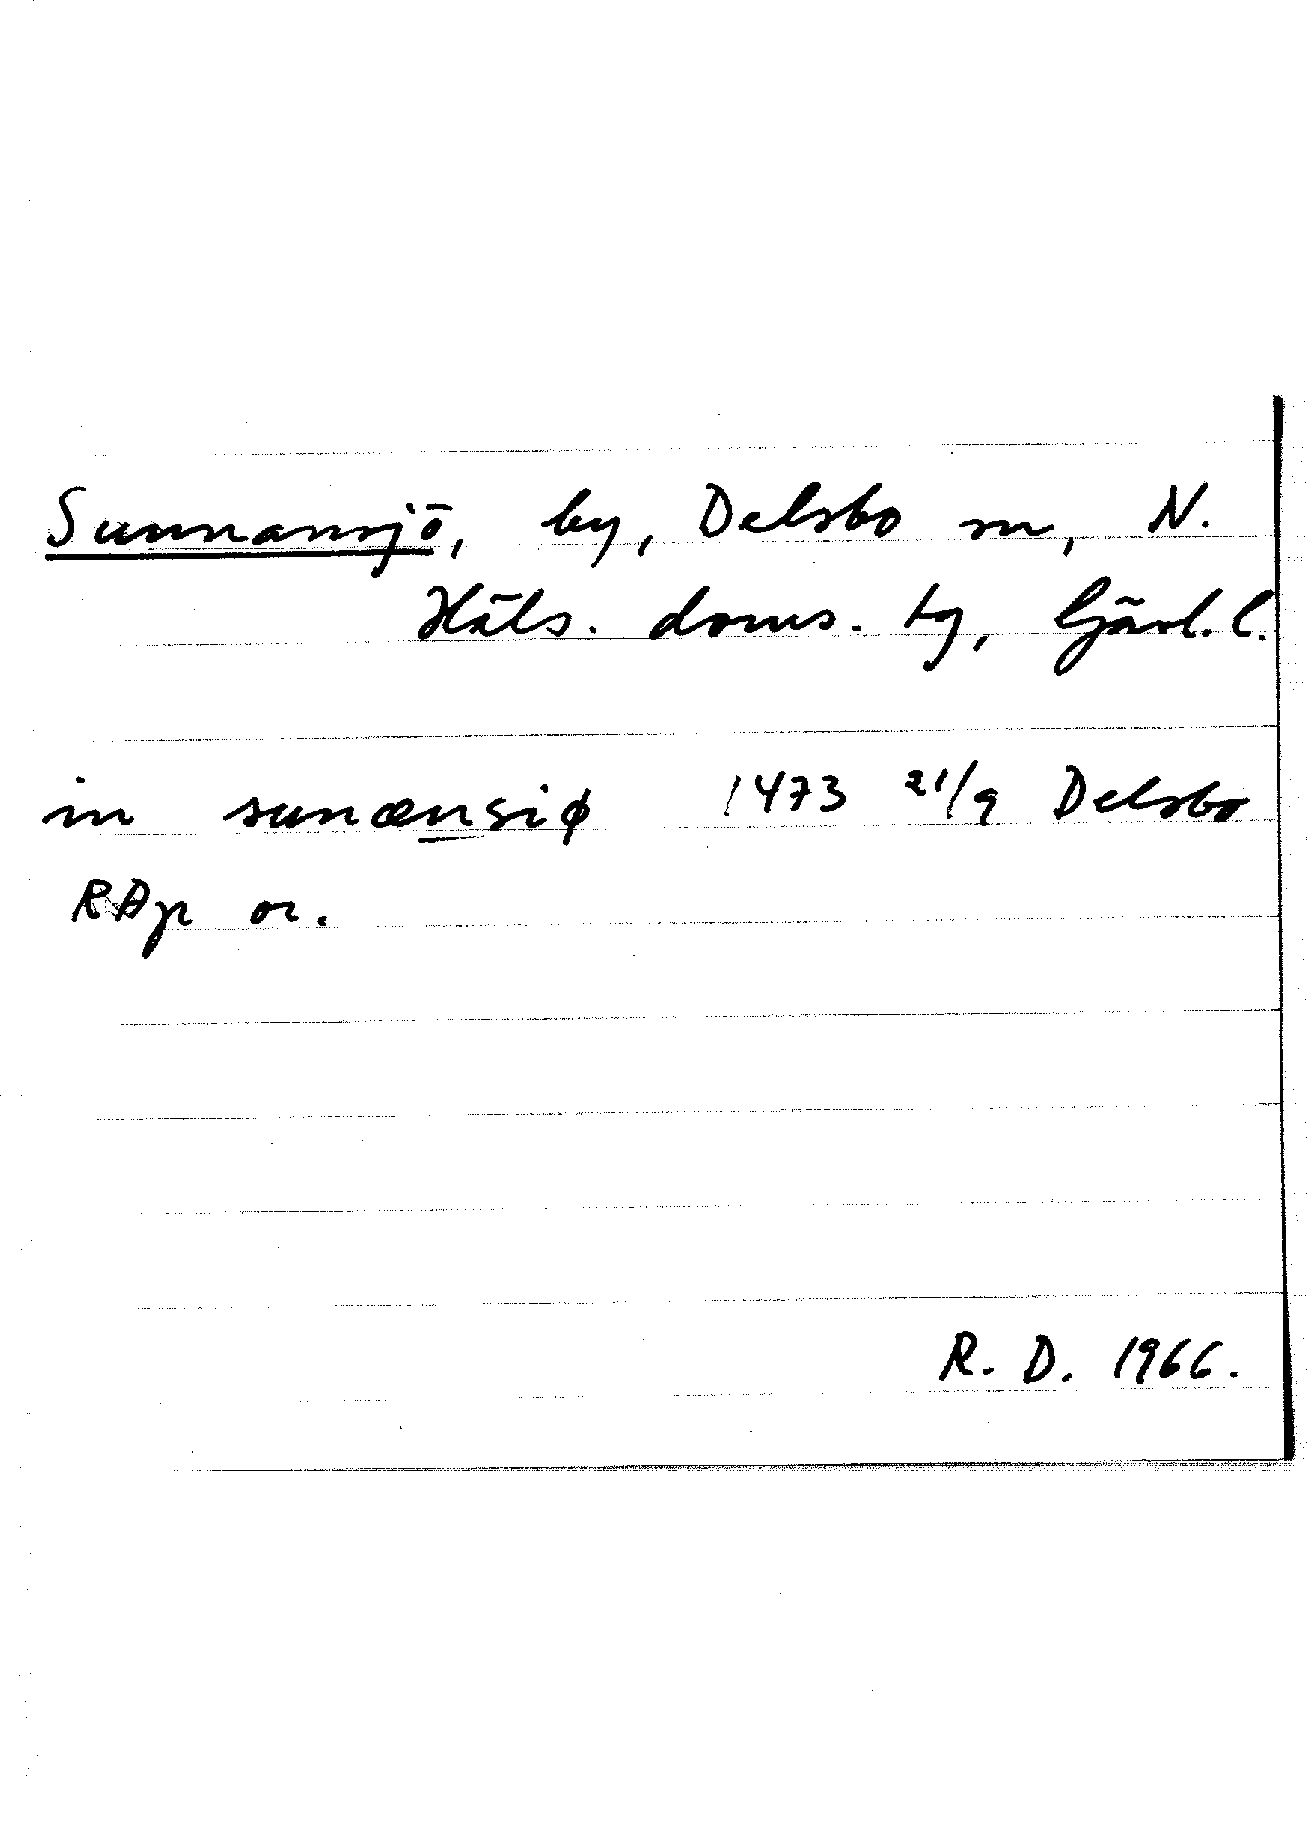 Sunnansjö, by, Delsbo sn, N.
Häls. doms. tg, Gävl. l.
in sunænsiø 1473 21/9 Delsbo
RAp or.
R. D. 1966.